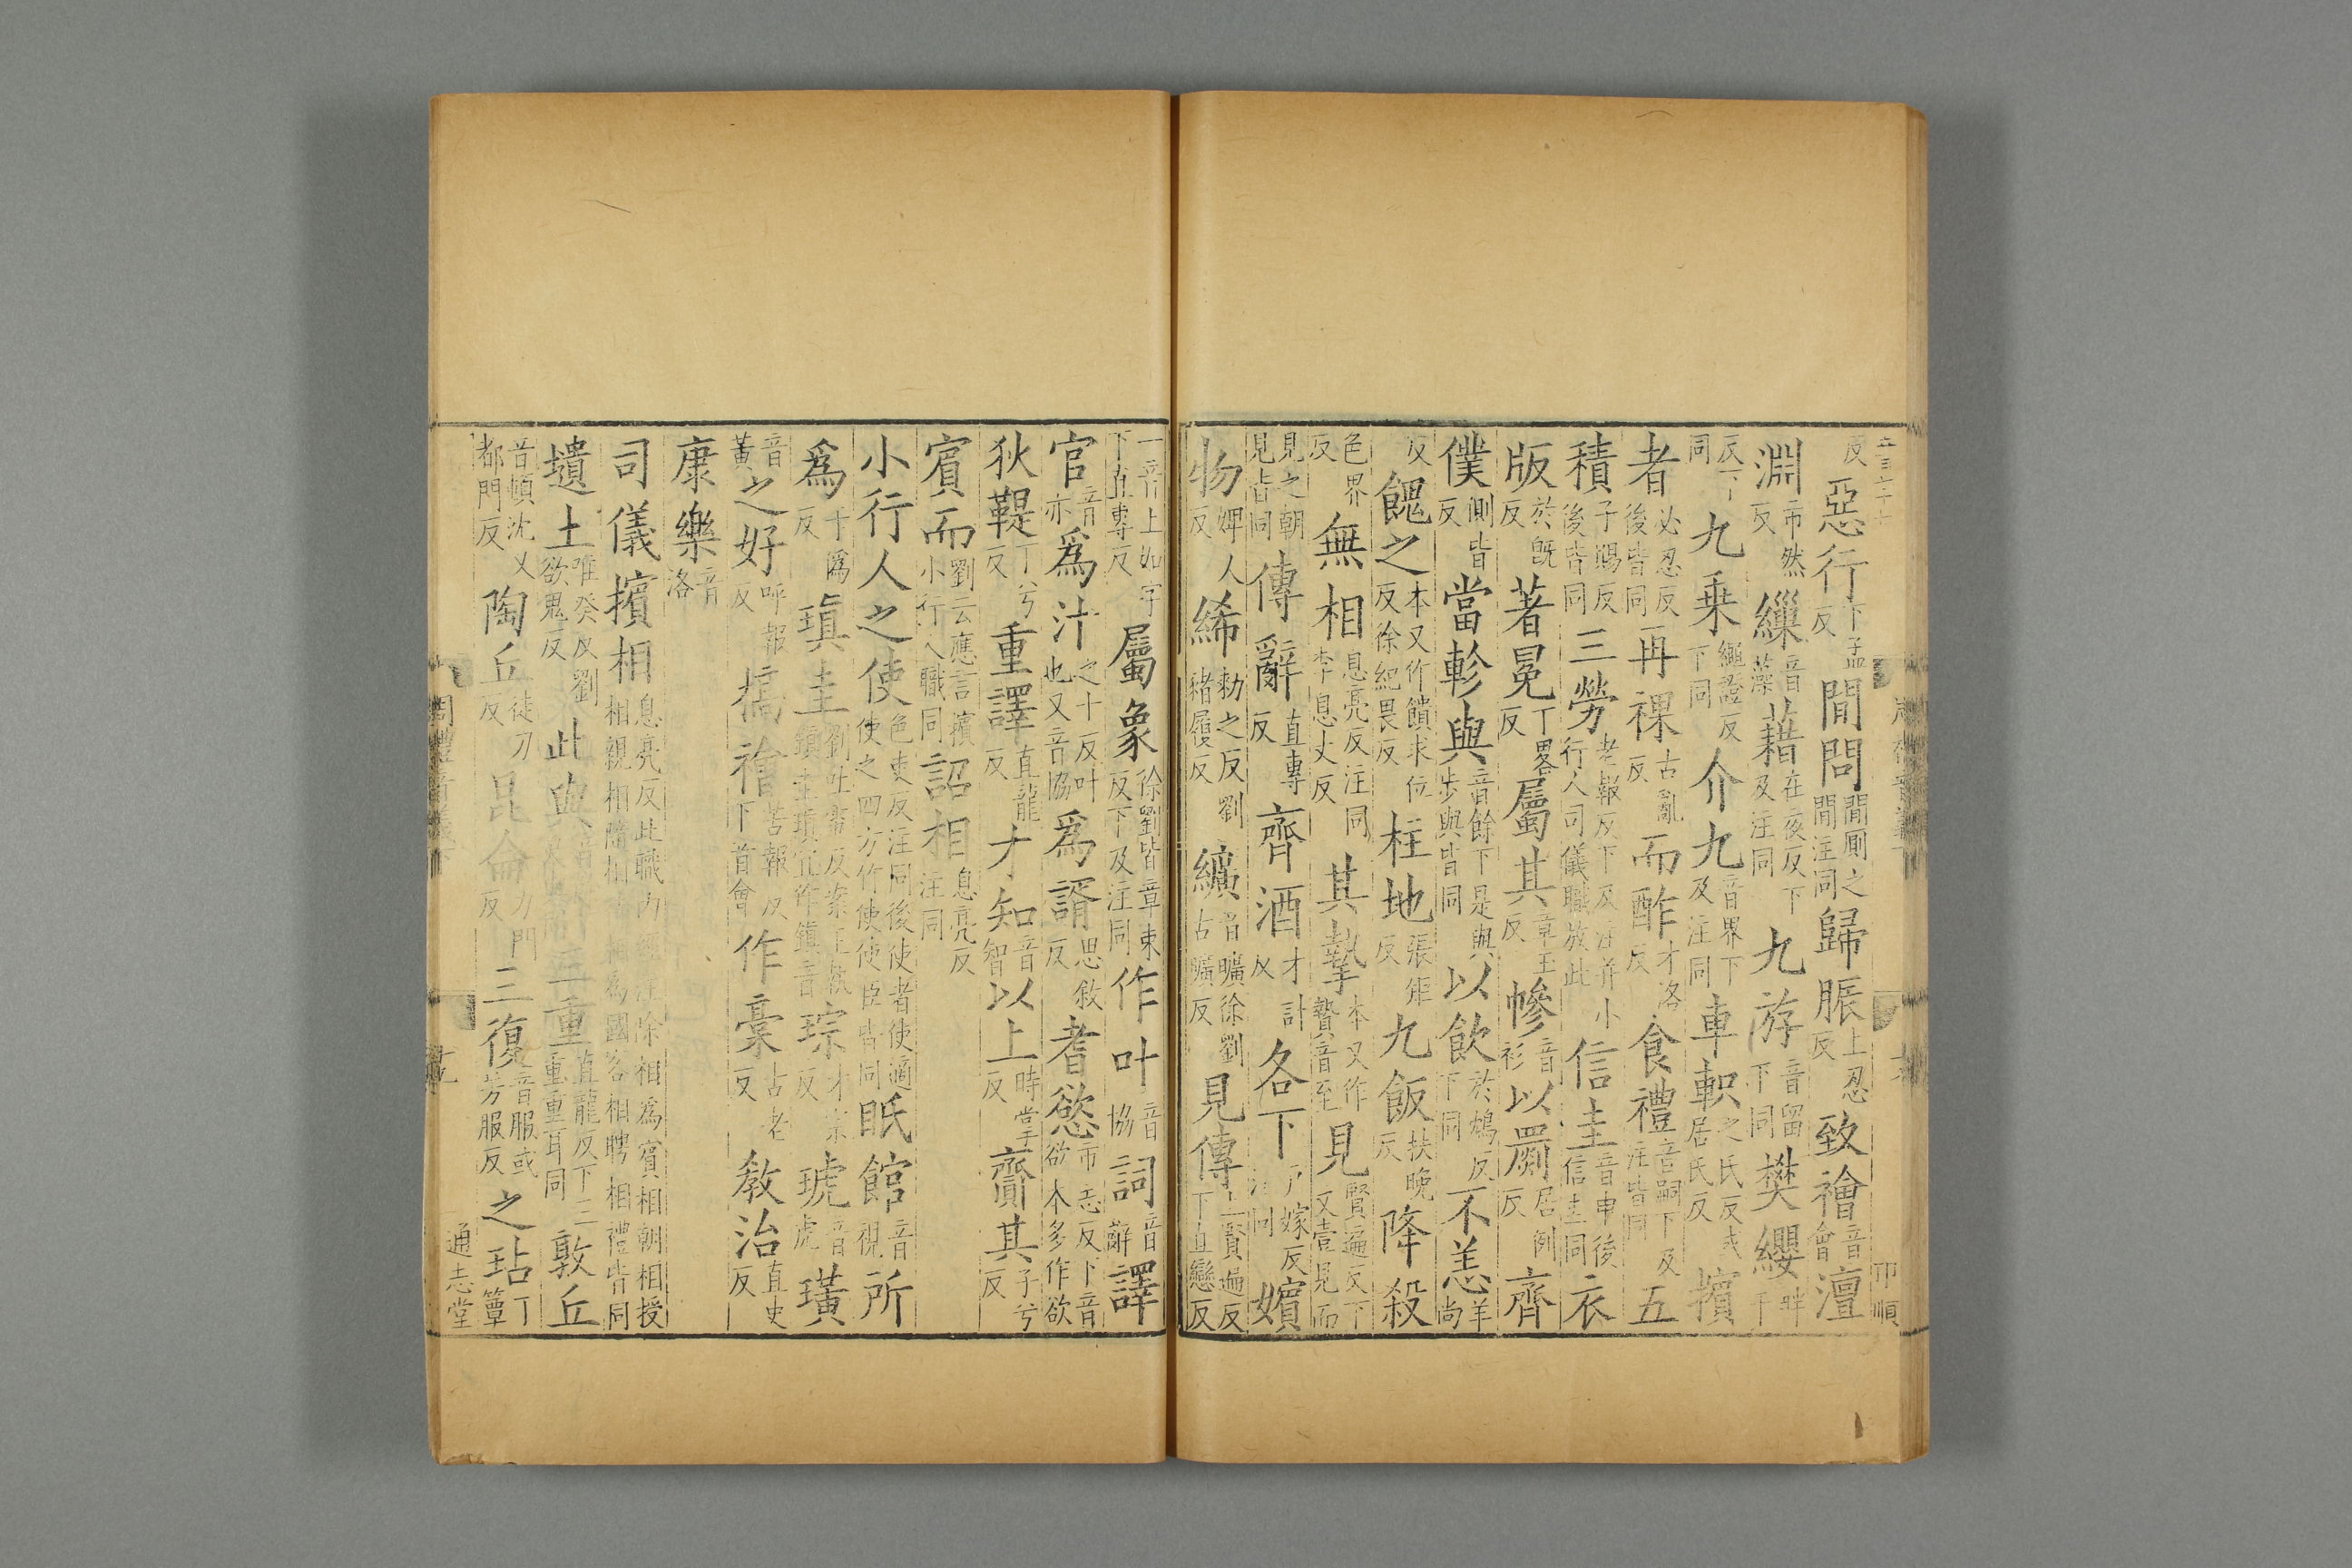 反惡行下孟反間問間厠之間注同歸脤上忍反致禬音會澶
淵市然反繅音藻藉在夜反下及注同九斿音留下同樊纓步干
反下同九乘繩證反下同介九音界下及注同車軹之氏反或居氏反擯
者必忍反後皆同再祼古亂反而酢才洛反食禮音嗣下及注皆同五
積子賜反後皆同三勞老報反下及注并小行人司儀職放此信圭音申後信圭同衣
版於旣反著冕丁畧反屬其章玉反幓音衫以罽居例反齊
僕側皆反當軫與音餘下是與步與皆同以飲於鴆反下同不恙羊尚
反餽之本又作饋求位反徐紀畏反柱地張矩反九飯扶晚反降殺
色界反無相息亮反注同李息丈反其摯本又作贄音至見賢遍反下又壹見而
見之朝見皆同傳辭直專反齊酒才計反各下戸嫁反注同嬪
物婢人反絺勑之反劉豬履反纊音曠徐劉古曠反見傳上賢遍反下直戀反
一音上如字下直專反屬象徐劉皆章束反下及注同作叶音協詞音辭譯
官音亦爲汁之十反叶也又音協爲諝思敘反耆慾市志反下音欲本多作欲
狄鞮丁兮反重譯直龍反才知音智以上時掌反齎其子兮反
賓而劉云應言擯小行人職同詔相息亮反注同
小行人之使色吏反注同後使者使適使之四方竹使使臣皆同眡館音視所
爲于僞反瑱圭劉吐電反案王執鎮圭瑱宜作鎮音琮才宗反琥音虎璜
音黃之好呼報反槁禬苦報反下首會作稾古老反敎治直吏反
康樂音洛
司儀擯相息亮反此職內經注除相爲賓相朝相授相親相隨相 相爲國客相聘相禮皆同
壝土唯癸反劉欲鬼反此與音餘三重直龍反下三重重耳同敦丘
音頓沈又都門反陶丘徒刀反昆侖力門反三復音服或芳服反之玷丁簟
通志堂